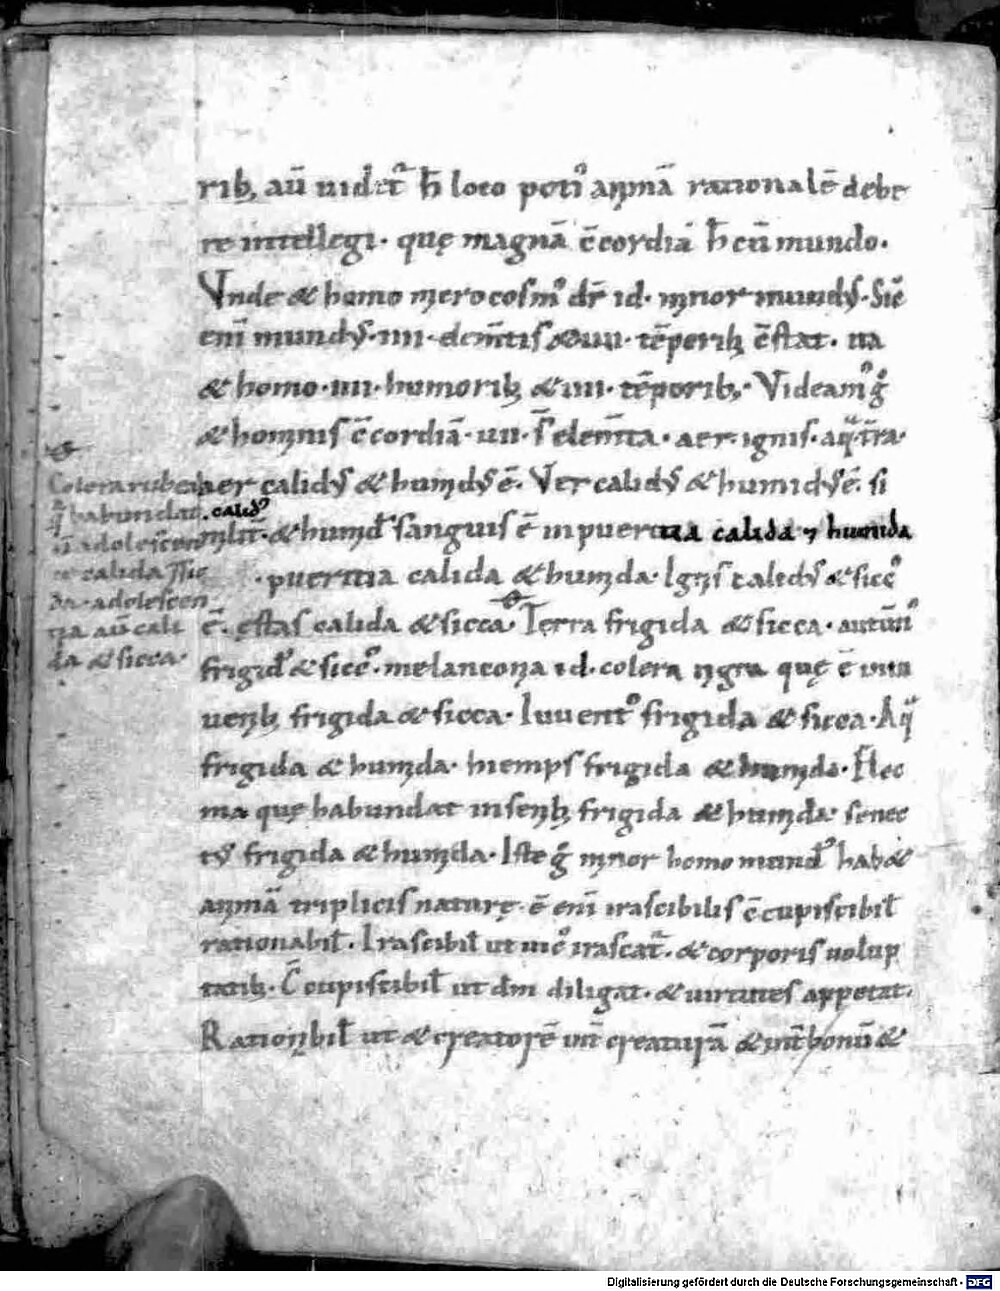 rib; aū uidet᷑ h̄ loco poti᷒ animā rationalē debe
re intellegi· quę magnā c̄cordiā h̄ cū mundo·
Vnde & homo microcosm᷒ dr̄ id· minor mundꝰ· Sic̄
enī mundꝰ· iiii· elem̄tis & iiii· tēporib; c̄stat· ita
& homo· iiii· humorib; & iiii· tēporib;· Videam᷒ g̊
& hominis c̄cordiā· iiii· s̄ elem̄ta· aer· ignis· aq̄· t̄ra·
aer calidꝰ & humidꝰ ē· Ver calidꝰ & humidꝰ ē· si
militer· calidꝰ & humidꝰ sanguis ē in pueritia calida ⁊ humida
· pueritia calida & humida· Ignis calidꝰ & sicc᷒
ē· estas calida & sicca· Terra frigida & sicca· autūn᷒
frigidꝰ & sicc᷒· melanconia id· colera nigra quę ē in iu
uenib; frigida & sicca· Iuuent᷒ frigida & sicca· Aq̄
frigida & humida· hiemps frigida & humida· Flec
ma quę habundat in senib; frigida & humida· senec
tꝰ frigida & humida· Iste g̊ minor homo mundꝰ hab&
animā triplicis naturę· ē enī irascibilis c̄cupiscibil̄
rationabil̄· Irascibil̄ ut uic̄ irascat᷑· & corporis uolup
tatib;· C̄cupiscibil̄ ut dm̄ diligat· & uirtutes appetat·
Rationabil̄ ut & creatorē int̄ creaturā & int̄ bonū &
Colera rubea
q̄ habundat
in adolescen
te calida & sic
da· adolescen
tia aū cali
da & sicca·
Digitalisierung gefördert durch die Deutsche Forschungsgemeinschaft - DFG